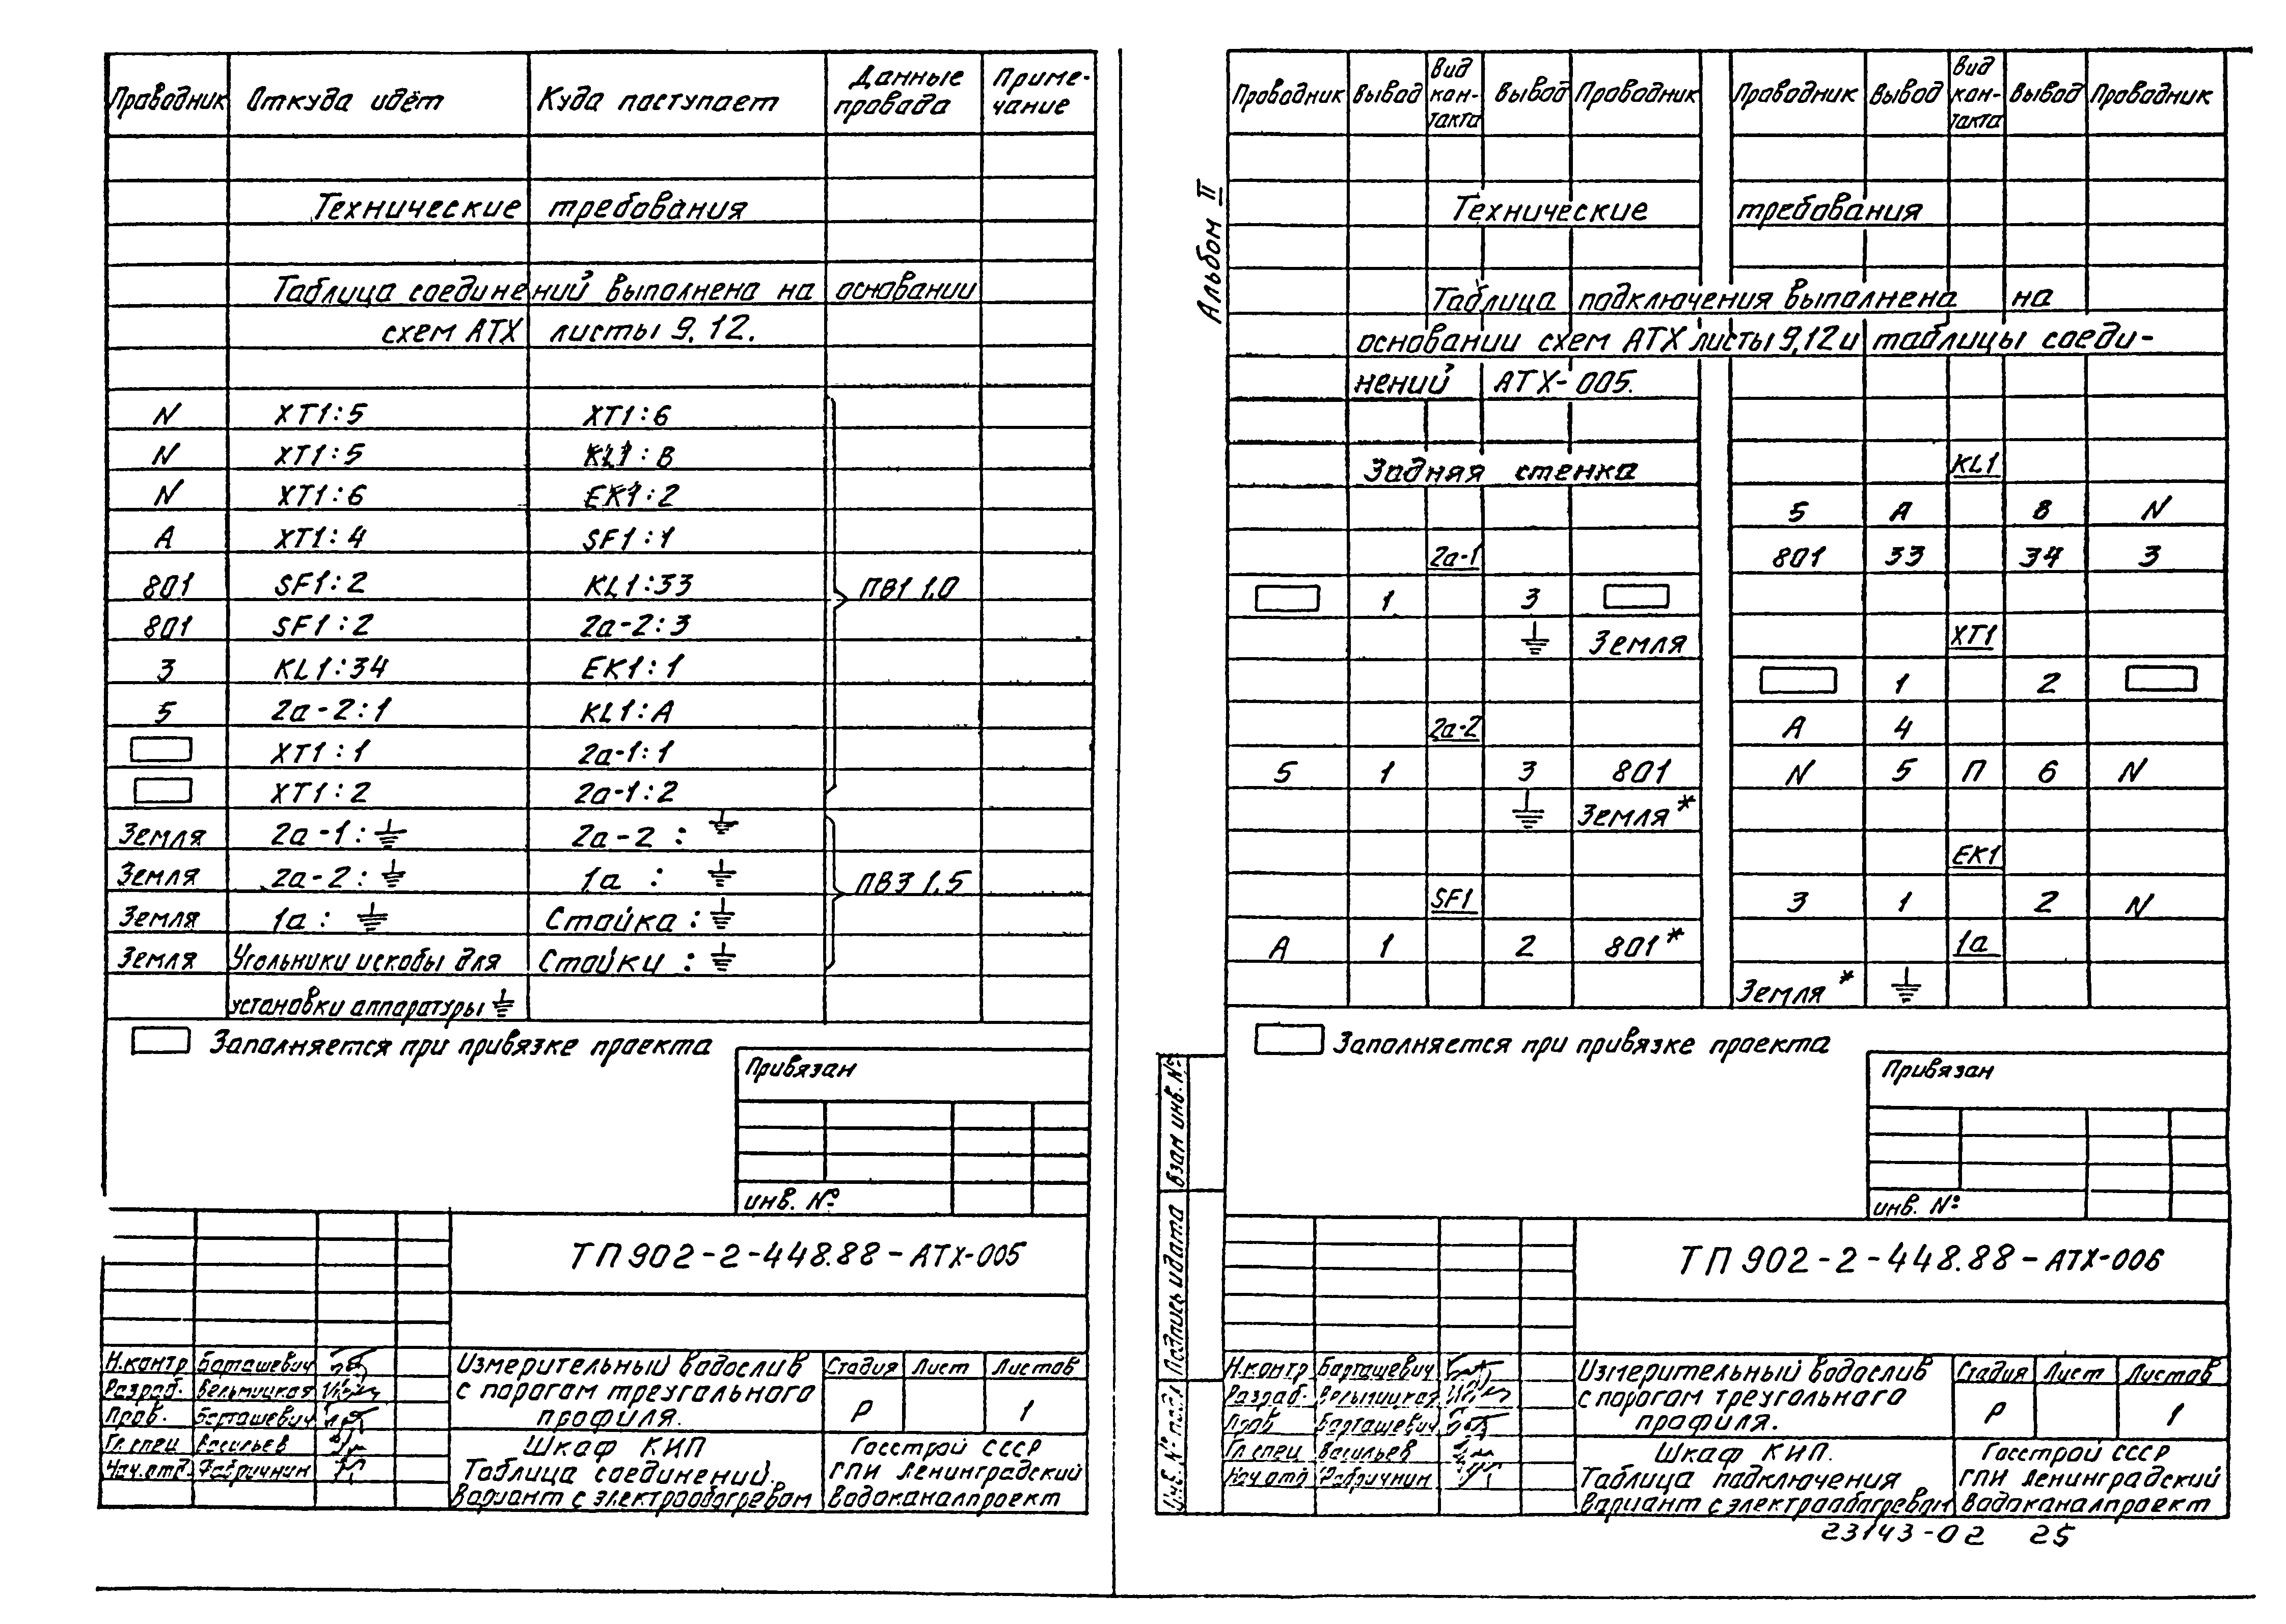 Проводник Откуда идёт Куда поступает Данные провода Приме-чание
Технические требования
Таблица соединений выполнена на основании
схем АТХ листы 9, 12.
N XT1:5 XT1:6
N XT1:5 KL1:В
N XT1:6 EK1:2
А XT1:4 SF1:1
801 SF1:2 KL1:33 ПВ1 1.0
801 SF1:2 2а-2:3
3 KL1:34 EK1:1
5 2а-2:1 KL1:А
XT1:1 2а-1:1
XT1:2 2а-1:2
Земля 2а-1:⏚ 2а-2:⏚
Земля 2а-2:⏚ 1а:⏚ ПВ3 1.5
Земля 1а:⏚ Стойка:⏚
Земля Угольники и скобы для Стойки:⏚
установки аппаратуры ⏚
Заполняется при привязке проекта
Привязан
инв. №
ТП 902-2-448.88-АТХ-005
Н.контр Барташевич
Разраб. Вельмицкая
Пров. Барташевич
Гл.спец Васильев
Нач.отд. Фабричнин
Измерительный водослив
с порогом треугольного
профиля.
Стадия Лист Листов
Р 1
Шкаф КИП
Таблица соединений.
Вариант с электрообогревом
Госстрой СССР
ГПИ Ленинградский
Водоканалпроект
Альбом II
Проводник Вывод Вид кон-такта Вывод Проводник Проводник Вывод Вид кон-такта Вывод Проводник
Технические требования
Таблица подключения выполнена на
основании схем АТХ листы 9,12 и таблицы соеди-
нений АТХ-005.
Задняя стенка
2а-1
1 3
⏚ Земля
2а-2
5 1 3 801
⏚ Земля*
SF1
А 1 2 801*
KL1
5 А В N
801 33 34 3
XT1
1 2
А 4
N 5 П 6 N
EK1
3 1 2 N
1а
Земля* ⏚
Заполняется при привязке проекта
Привязан
инв. №
Взам инв. №
Подпись и дата
Инв. № подл
ТП 902-2-448.88-АТХ-006
Н.контр Барташевич
Разраб. Вельмицкая
Пров Барташевич
Гл.спец Васильев
Нач отд Фабричнин
Измерительный водослив
с порогом треугольного
профиля.
Стадия Лист Листов
Р 1
Шкаф КИП.
Таблица подключения
Вариант с электрообогревом
Госстрой СССР
ГПИ Ленинградский
Водоканалпроект
23143-02 25